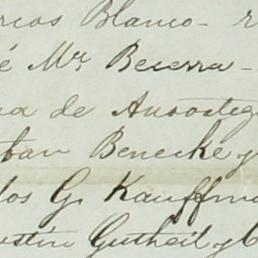 rcos Blanco -
é Mª. Becerra -
a de Auros
ban Benecke y
los G. Kauffm
ustin Gutheil y C